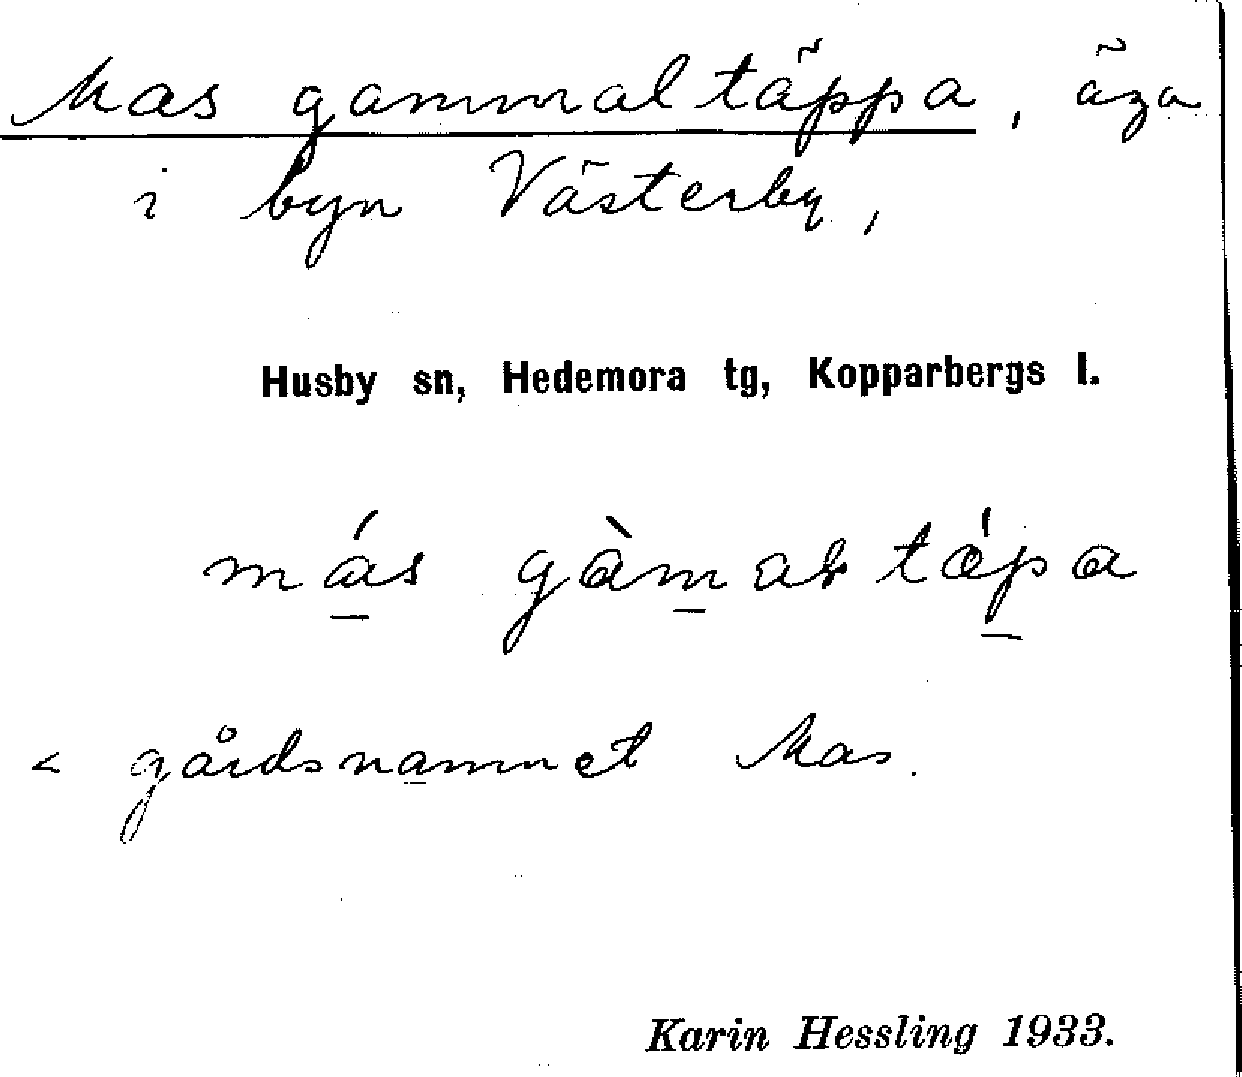 Mas gammaltäppa, äga
i byn Västerby,
Husby sn, Hedemora tg, Kopparbergs l.
má̱s gàm̱al tǽp̱a
< gårdsnamnet Mas.
Karin Hessling 1933.